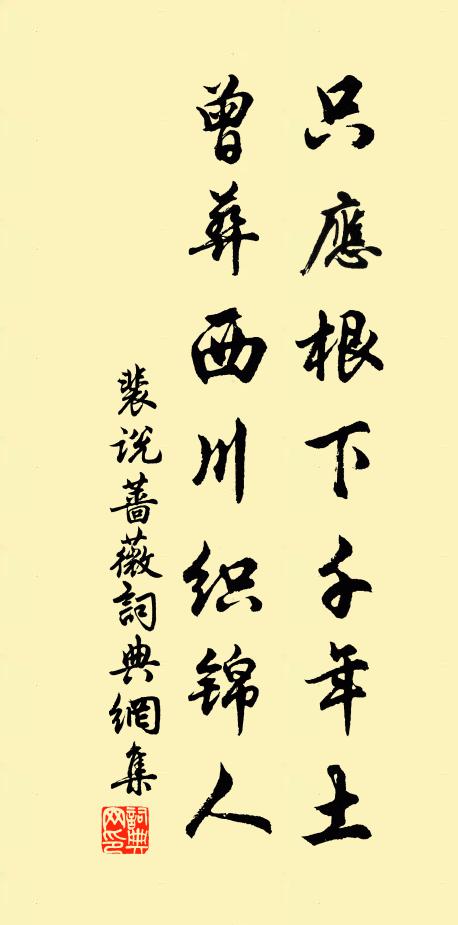 只應根下千年土
曾葬西川织錦人
裴说薔薇詞典網集
詞典网印